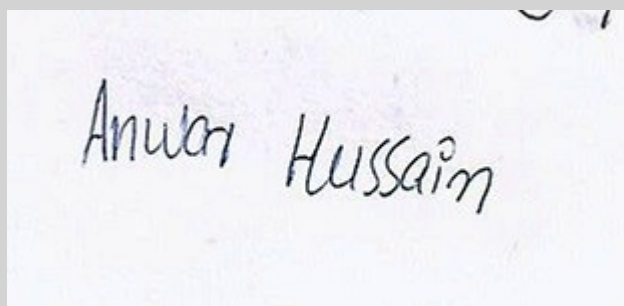 Anwar Hussain